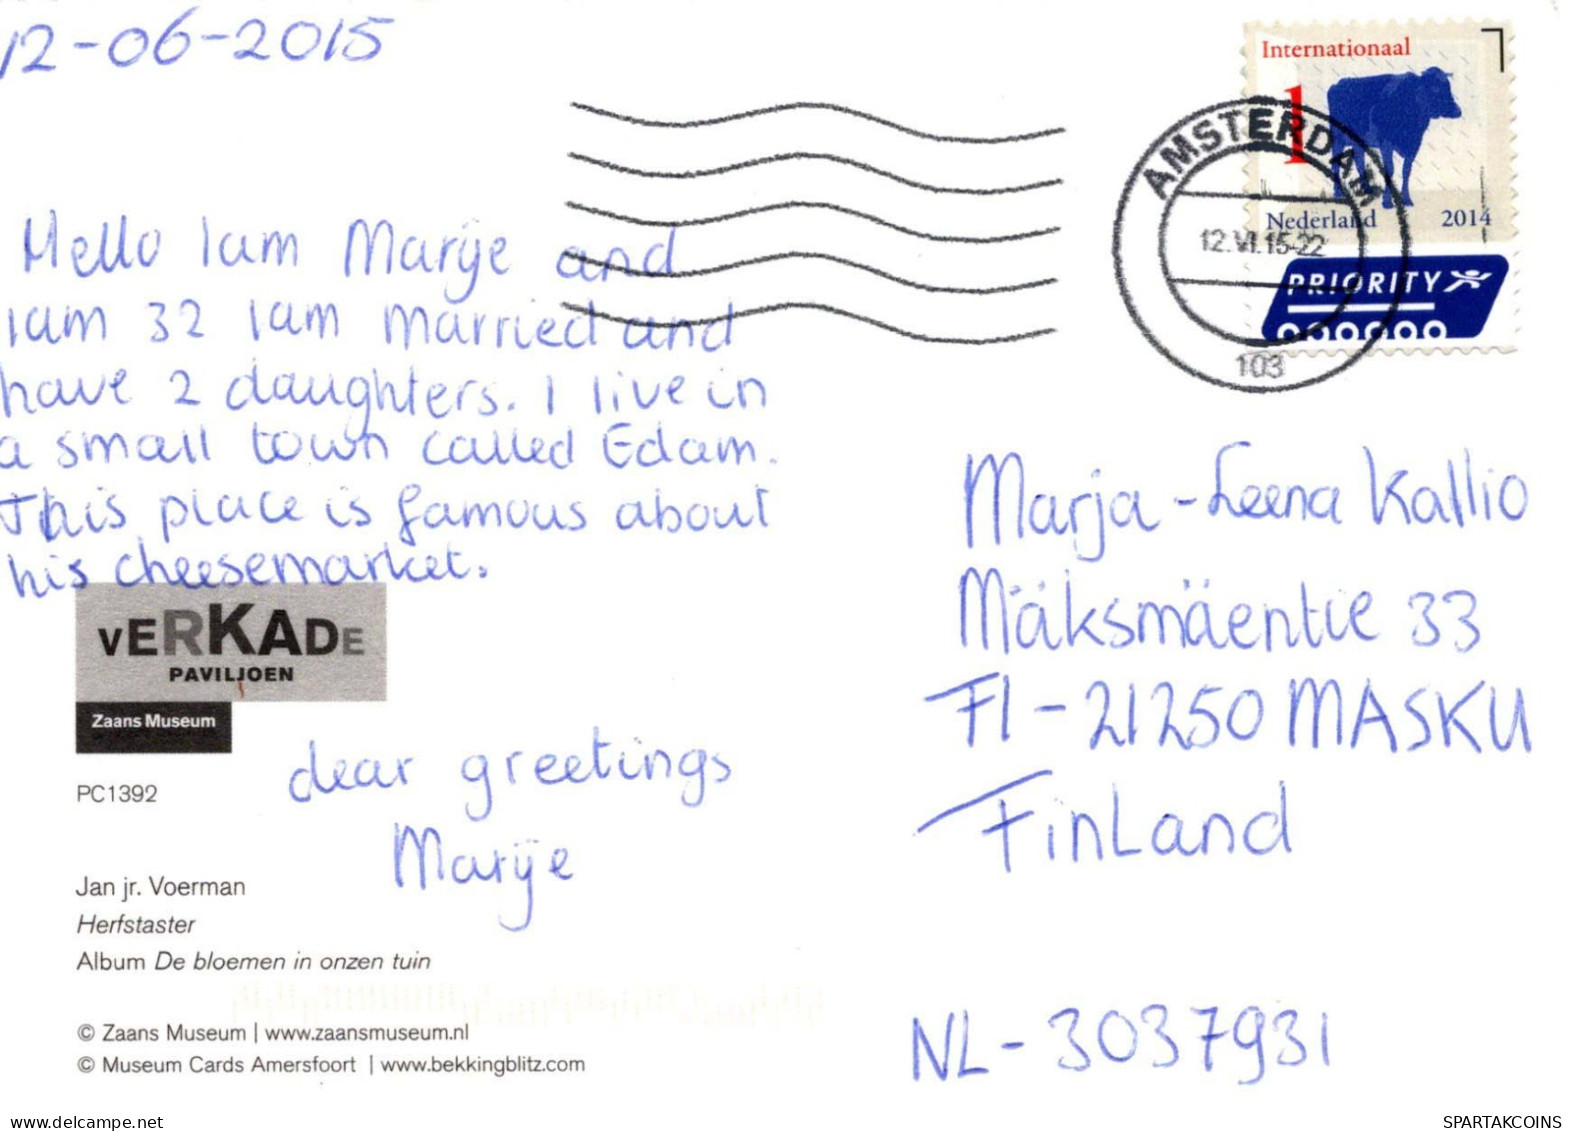 12-06-2015
Internationaal
1
Nederland 2014
PRIORITY
AMSTERDAM
12.VI.15-22
103
Hello I am Marije and
I am 32 I am married and
have 2 daughters. I live in
a small town called Edam.
This place is famous about
his cheesemarket.
VERKADE
PAVILJOEN
Zaans Museum
PC1392
dear greetings
Marije
Jan jr. Voerman
Herfstaster
Album De bloemen in onzen tuin
© Zaans Museum | www.zaansmuseum.nl
© Museum Cards Amersfoort | www.bekkingblitz.com
Marja-Leena Kallio
Mäksmäentie 33
FI-21250 MASKU
FinLand
NL-3037931
delcampe.net
SPARTAKCOINS